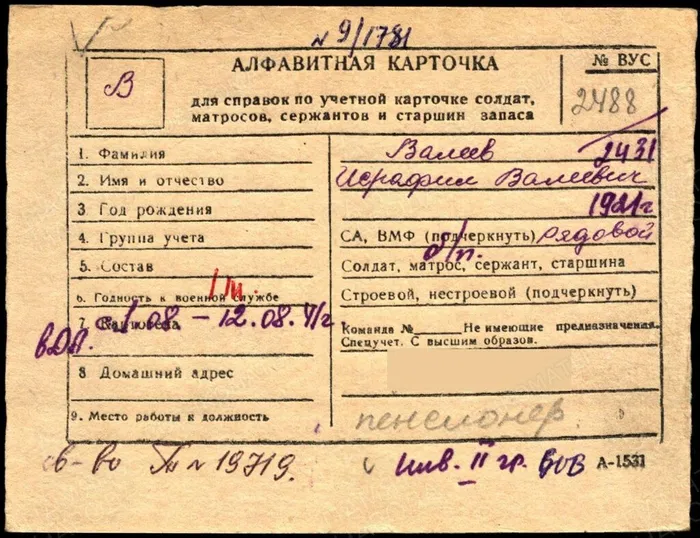 № 9/1781
АЛФАВИТНАЯ КАРТОЧКА
№ ВУС
В
2488
для справок по учетной карточке солдат,
матросов, сержантов и старшин запаса
1. Фамилия
Валеев
2431
2. Имя и отчество
Исрафил Валеевич
3. Год рождения
1921 г
4. Группа учета
СА, ВМФ (подчеркнуть) рядовой
5. Состав
Солдат, матрос, сержант, старшина
б/п.
6. Годность к военной службе
Строевой, нестроевой (подчеркнуть)
7
08. – 12.08. 41г
Команда № Не имеющие предназначения.
Спецучет. С высшим образов.
8 Домашний адрес
9. Место работы и должность
пенсионер
св-во № 19719.
Инв. II гр. ВОВ
А-1531